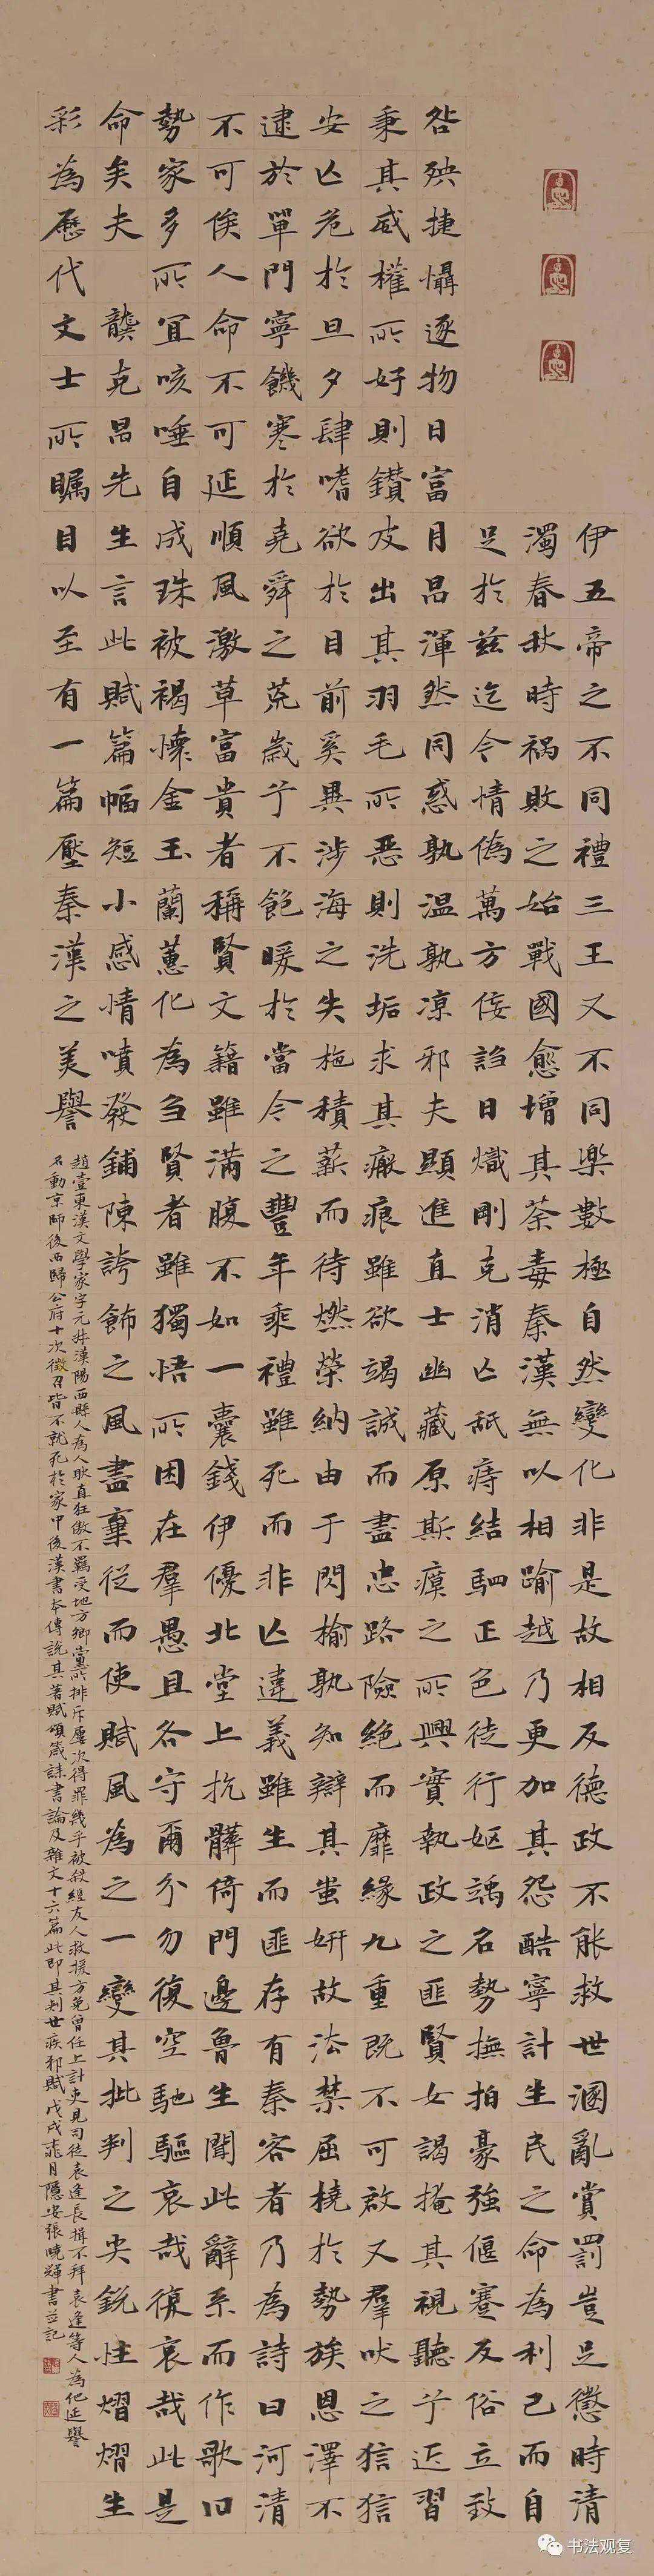 伊五帝之不同禮三王又不同樂數極自然變化非是故相反德政不能救世溷亂賞罰豈足懲時清
濁春秋時禍敗之始戰國愈增其荼毒秦漢無以相踰越乃更加其怨酷寧計生民之命為利己而自
足於茲迄今情偽萬方佞諂日熾剛克消亡舐痔結駟正色徒行嫗䛥名勢撫拍豪強偃蹇反俗立致
咎殃捷懾逐物日富月昌渾然同惑孰溫孰凉邪夫顯進直士幽藏原斯瘼之所興實執政之匪賢女謁掩其視聽兮近習
秉其威權所好則鑽皮出其羽毛所惡則洗垢求其瘢痕雖欲竭誠而盡忠路險絕而靡緣九重既不可啟又羣吠之狺狺
安亡危於旦夕肆嗜欲於目前奚異涉海之失柂積薪而待燃榮納由于閃榆孰知辯其蚩妍故法禁屈橈於勢族恩澤不
逮於單門寧饑寒於堯舜之荒歲兮不飽暖於當今之豐年乘禮雖死而非亡違義雖生而匪存有秦客者乃為詩曰河清
不可俟人命不可延順風激草富貴者稱賢文籍雖滿腹不如一囊錢伊優北堂上抗髒倚門邊魯生聞此辭系而作歌曰
勢家多所宜咳唾自成珠被褐懷金玉蘭蕙化為芻賢者雖獨悟所困在羣愚且各守爾分勿復空馳驅哀哉復哀哉此是
命矣夫 龔克昌先生言此賦篇幅短小感情噴發鋪陳誇飾之風盡棄從而使賦風為之一變其批判之尖銳性熠熠生
彩為歷代文士所矚目以至有一篇壓秦漢之美譽
趙壹東漢文學家字元叔漢陽西縣人為人耿直狂傲不羈受地方鄉黨所排斥屢次得罪幾乎被殺經友人救援方免曾任上計吏見司徒袁逢長揖不拜袁逢等人為他延譽
名動京師後西歸公府十次徵召皆不就死於家中後漢書本傳說其著賦頌箴誄書論及雜文十六篇此即其刺世疾邪賦戊戌 月隱安張曉輝書並記
书法观复